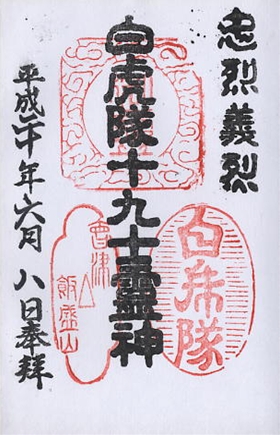 忠烈義烈
白虎隊十九士霊神
平成二十年六月八日奉拜
白虎隊
會津
飯盛山